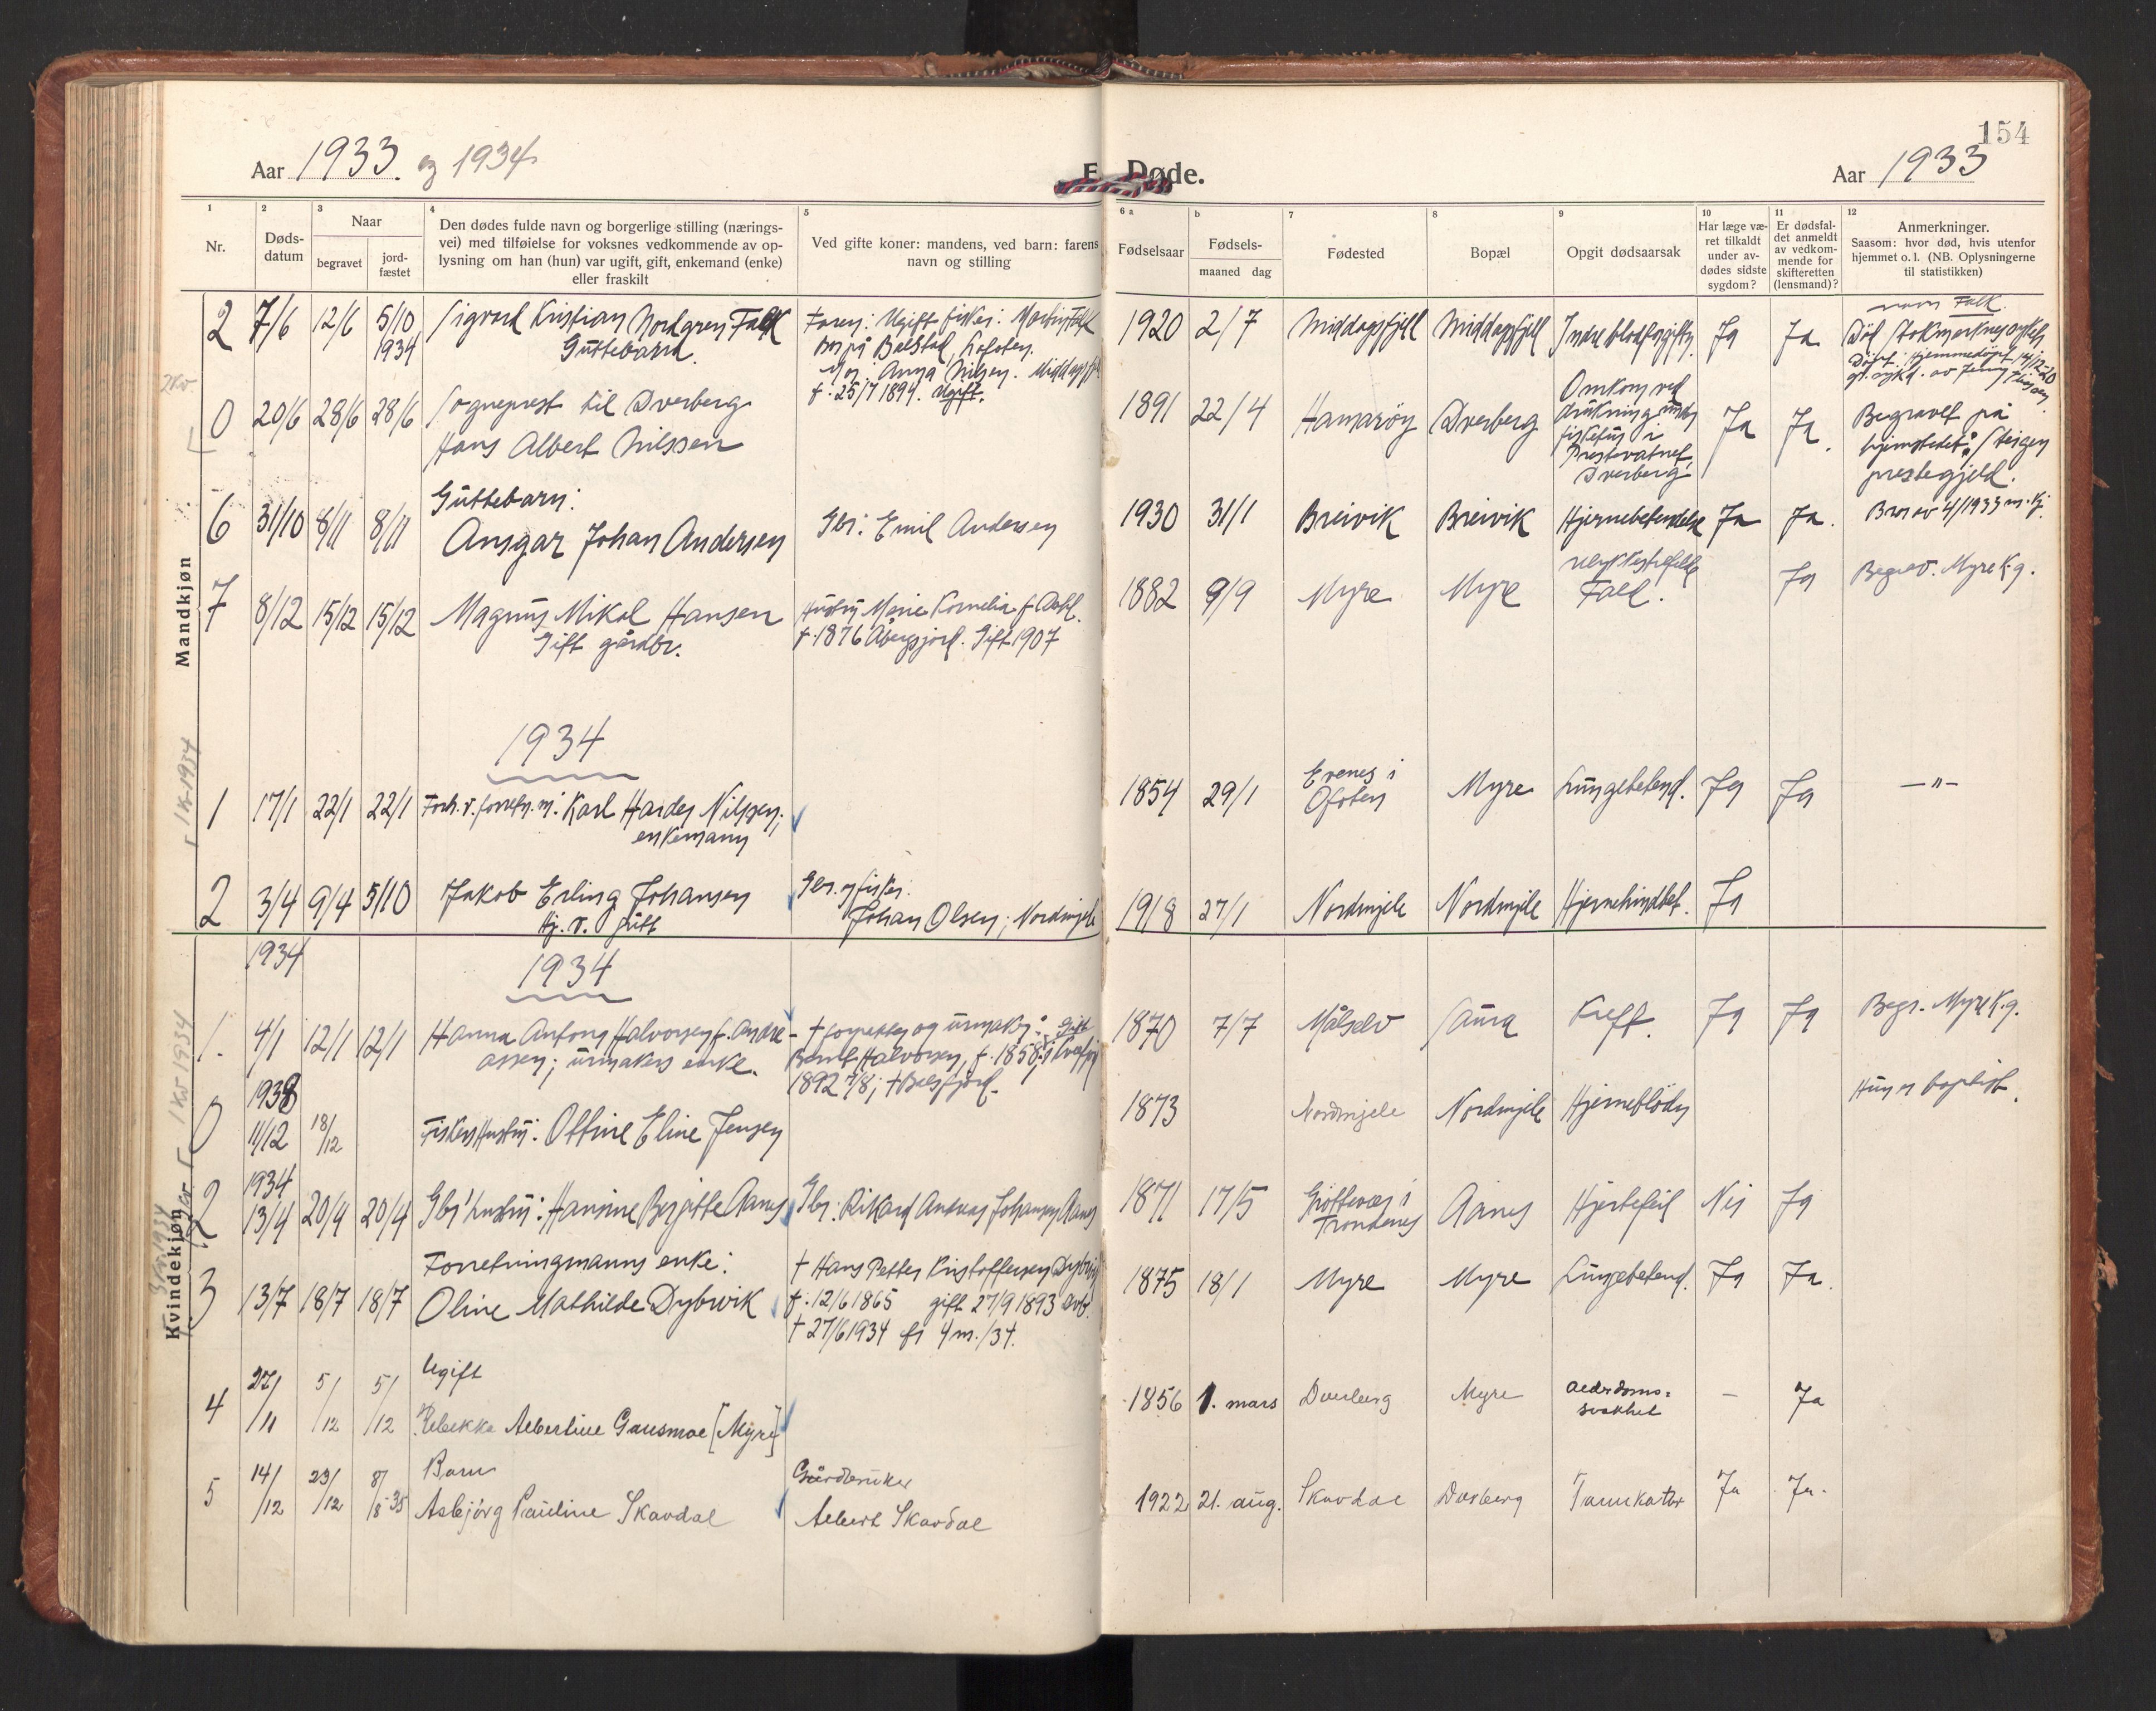 154
Aar 1933. og 1934
E. Døde.
Aar 1933
1 Nr.
2 Døds-
datum
3 Naar
begravet
jord-
fæstet
4 Den dødes fulde navn og borgerlige stilling (nærings-
vei) med tilføielse for voksnes vedkommende av op-
lysning om han (hun) var ugift, gift, enkemand (enke)
eller fraskilt
5 Ved gifte koner: mandens, ved barn: farens
navn og stilling
6 a Fødselsaar
b Fødsels-
maaned dag
7 Fødested
8 Bopæl
9 Opgit dødsaarsak
10 Har læge væ-
ret tilkaldt
under av-
dødes sidste
sygdom?
11 Er dødsfal-
det anmeldt
av vedkom-
mende for
skifteretten
(lensmand)?
12 Anmerkninger.
Saasom: hvor død, hvis utenfor
hjemmet o. l. (NB. Oplysningerne
til statistikken)
Mandkjøn
2 7/6 12/6 5/10 1934 Sigvard Kristian Nordgren Falk
Guttebarn
Faren: Ugift fisker: Martin Falk
Bor på Balstad, Lofoten.
Mor: Anna Nilsen. Middagsfj
f. 25/7 1894. Ugift.
1920 2/7 Middagsfjell Middagsfjell Indre blodforgiftn. Ja Ja
navn Falk.
Død Stokmarknes sykeh.
0 20/6 28/6 28/6 Sogneprest til Dverberg
Hans Albert Nilssen
1891 22/4 Hamarøy Dverberg
Omkom ved
drukning under
fisketur i
Prestevatnet,
Dverberg
Ja Ja.
Begravet på
hjemstedet: Steigen
prestegjeld.
6 31/10 8/11 8/11 Guttebarn:
Ansgar Johan Andersen
Gbr: Emil Andersen
1930 31/1 Breivik Breivik Hjernebetendelse Ja Ja.
Bror av 4/1933 m.kj.
7 8/12 15/12 15/12 Magnus Mikal Hansen
Gift gårdbr.
Hustru Marie Kornelia f. Dahl.
f. 1876 Åbergsjord. Gift 1907
1882 9/9 Myre Myre Ulykkestilfelle
Fall.
Ja Begrav. Myre K.g.
1934
r 1 K 1934
1 17/1 22/1 22/1 Forh.v. forretn.m: Karl Hardes Nilssen;
enkemann
1854 29/1 Evenes i
Ofoten
Myre Lungebetend. Ja Ja — " —
2 3/4 9/4 5/10 Jakob Erling Johansen
Hj. v. gutt
Gbr. og fisker:
Johan Olsen; Nordmjele
1918 27/1 Nordmjele Nordmjele Hjernehindbet. Ja
Kvindekjøn
1934
1934
1. 4/1 12/1 12/1 Hanna Antona Halvorsen f. Andre
assen; urmakers enke.
- † forretn. og urmaker: Gift
Bernt Halvorsen, f. 1858; i Kvæfjord
1892 7/8; † Balsfjord.
1870 7/7 Målselv Saura Kreft. Ja Ja Begr. Myre K.g.
1938
0 11/12 18/12 Fiskers hustru: Ottine Eline Jensen
1873 Nordmjele Nordmjele Hjerneblødn
Hun er baptist.
1934
2 13/4 20/4 20/4 Gbr' hustru: Hansine Bergitte Aanes
Gbr: Rikard Andreas Johansen Aanes
1871 17/5 Grøttevær i
Trondenes
Aanes Hjertefeil Nei Ja
3 13/7 18/7 18/7 Forretningmanns enke:
Oline Mathilde Dybvik
† Hans Petter Kristoffersen Dybvik
f. 12/6 1865 gift 27/9 1893 Dvb.
† 27/6 1934 fr 4 m./34.
1875 18/1 Myre Myre Lungebetend. Ja Ja
4 27/11 5/12 5/12 Ugift
Rebekka Albertine Gausmoe [Myre]
1856 1. mars Dverberg Myre Alderdoms-
svakhet
— Ja
5 14/12 23/12 8/8-35 Barn
Asbjørg Pauline Skavdal
Gårdbruker
Albert Skavdal
1922 21. aug. Skavdal Dverberg Tarmkatar Ja Ja.